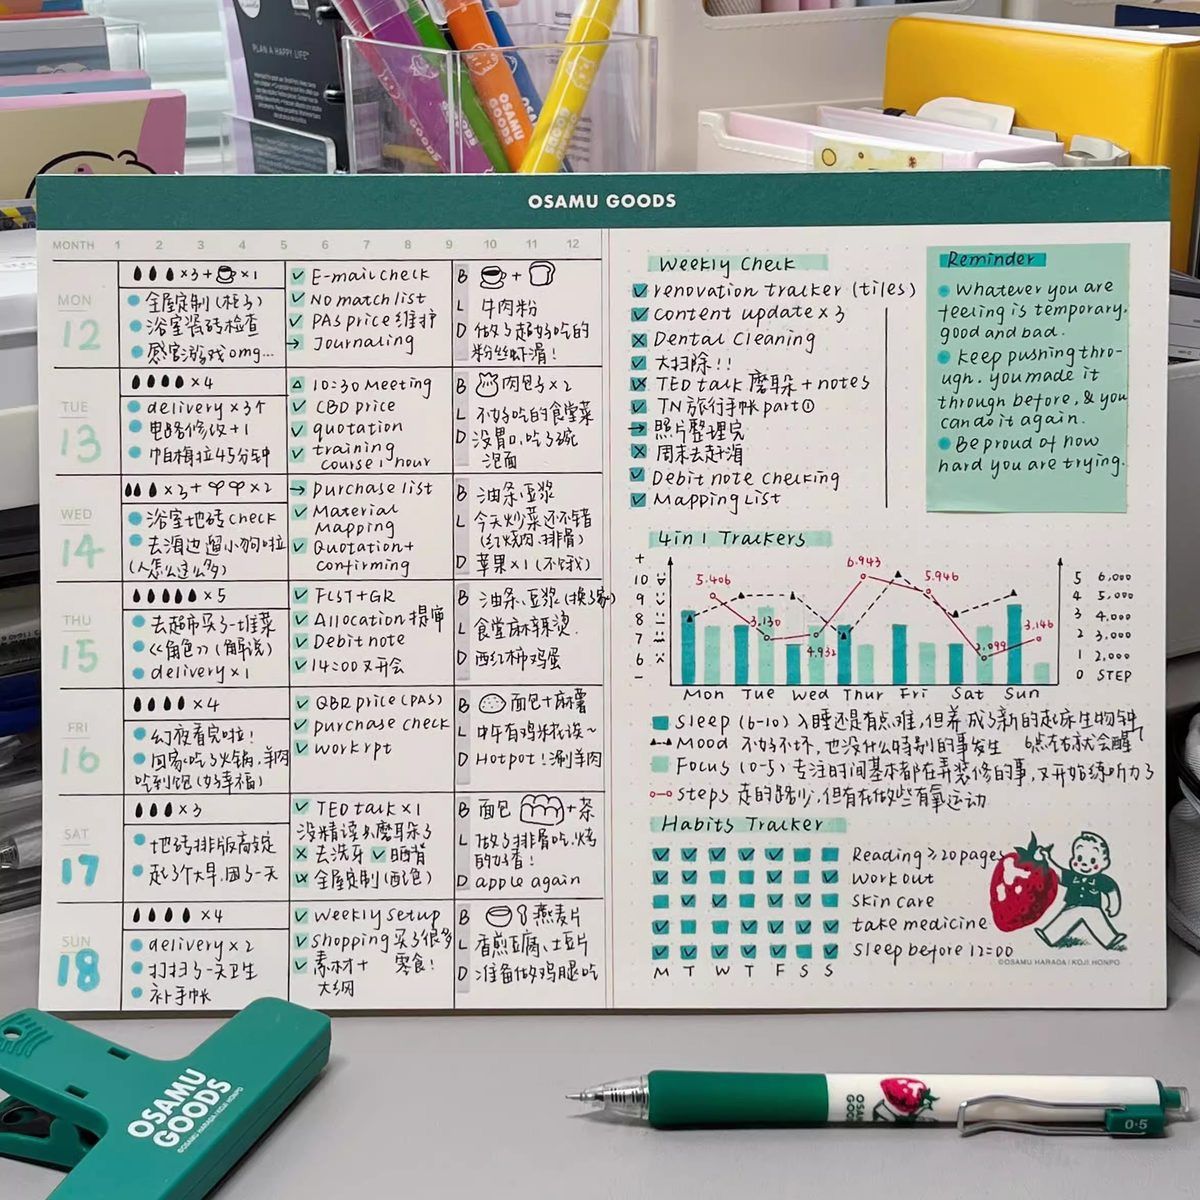 PLAN A HAPPY LIFE
OSAMU GOODS
OSAMU GOODS
OSAMU GOODS
MONTH 1 2 3 4 5 6 7 8 9 10 11 12
MON
12
×3+ ×1
全屋定制(柜子)
浴室瓷砖检查
感官游戏omg...
E-mail check
No match list
PAS price 维护
Journaling
B +
L 牛肉粉
D 做了超好吃的
粉丝虾滑!
TUE
13
×4
delivery×3个
电路修改+1
帕梅拉45分钟
10:30 Meeting
CBD price
quotation
training
course 1 hour
B 肉包子×2
L 不好吃的食堂菜
D 没胃口,吃了碗
泡面
WED
14
×3+ ×2
浴室地砖check
去海边遛小狗啦
(人怎么这么多)
Purchase list
Material
Mapping
Quotation+
confirming
B 油条、豆浆
L 今天炒菜还不错
(红烧肉、排骨)
D 苹果×1(不饿)
THU
15
×5
去超市买了一堆菜
《角色》(解说)
delivery×1
FCST+GR
Allocation 提审
Debit note
14:00 又开会
B 油条、豆浆(换了家)
L 食堂麻辣烫.
D 西红柿鸡蛋
FRI
16
×4
幻夜看完啦!
回家吃了火锅,羊肉
吃到饱(好幸福)
QBR price (PAS)
purchase check
work rpt
B 面包+麻薯
L 中午有鸡米花诶~
D Hotpot!涮羊肉
SAT
17
×3
地砖排版高定
起了个大早,困了一天
TED talk×1
没精读&磨耳朵了
去洗牙 晒背
全屋定制(西边)
B 面包 +茶
L 做了排骨吃,烤
的好香!
D apple again
SUN
18
×4
delivery×2
打扫了一天卫生
补手帐
Weekly setup
shopping 买了很多
素材+ 零食!
大纲
B 燕麦片
L 香煎豆腐、土豆片
D 准备做鸡腿吃
Weekly Check
renovation tracker (tiles)
content update×3
Dental Cleaning
大扫除!!
TED talk 磨耳朵+notes
TN 旅行手帐 part①
照片整理完
周末去赶海
Debit note checking
Mapping List
Reminder
Whatever you are
feeling is temporary.
good and bad.
Keep pushing thro-
ugh. you made it
through before, & you
can do it again.
Be proud of how
hard you are trying.
4 in 1 Trackers
+ 10 9 8 7 6 -
5.406 3,130 4.932 6.943 5.946 2,099 3.146
5 6,000
4 5,000
3 4,000
2 3,000
1 2,000
0 STEP
Mon Tue Wed Thur Fri Sat Sun
Sleep (6-10) 入睡还是有点难,但养成了新的起床生物钟,
6点左右就会醒
Mood 不好不坏,也没什么特别的事发生
Focus (0-5) 专注时间基本都在弄装修的事,又开始练听力了
steps 走的路少,但有在做些有氧运动
Habits Tracker
Reading ≥20 pages
Work out
Skin care
take medicine
Sleep before 12:00
M T W T F S S
©OSAMU HARADA / KOJI HONPO
OSAMU
GOODS
©OSAMU HARADA / KOJI HONPO
OSAMU
GOODS
0.5